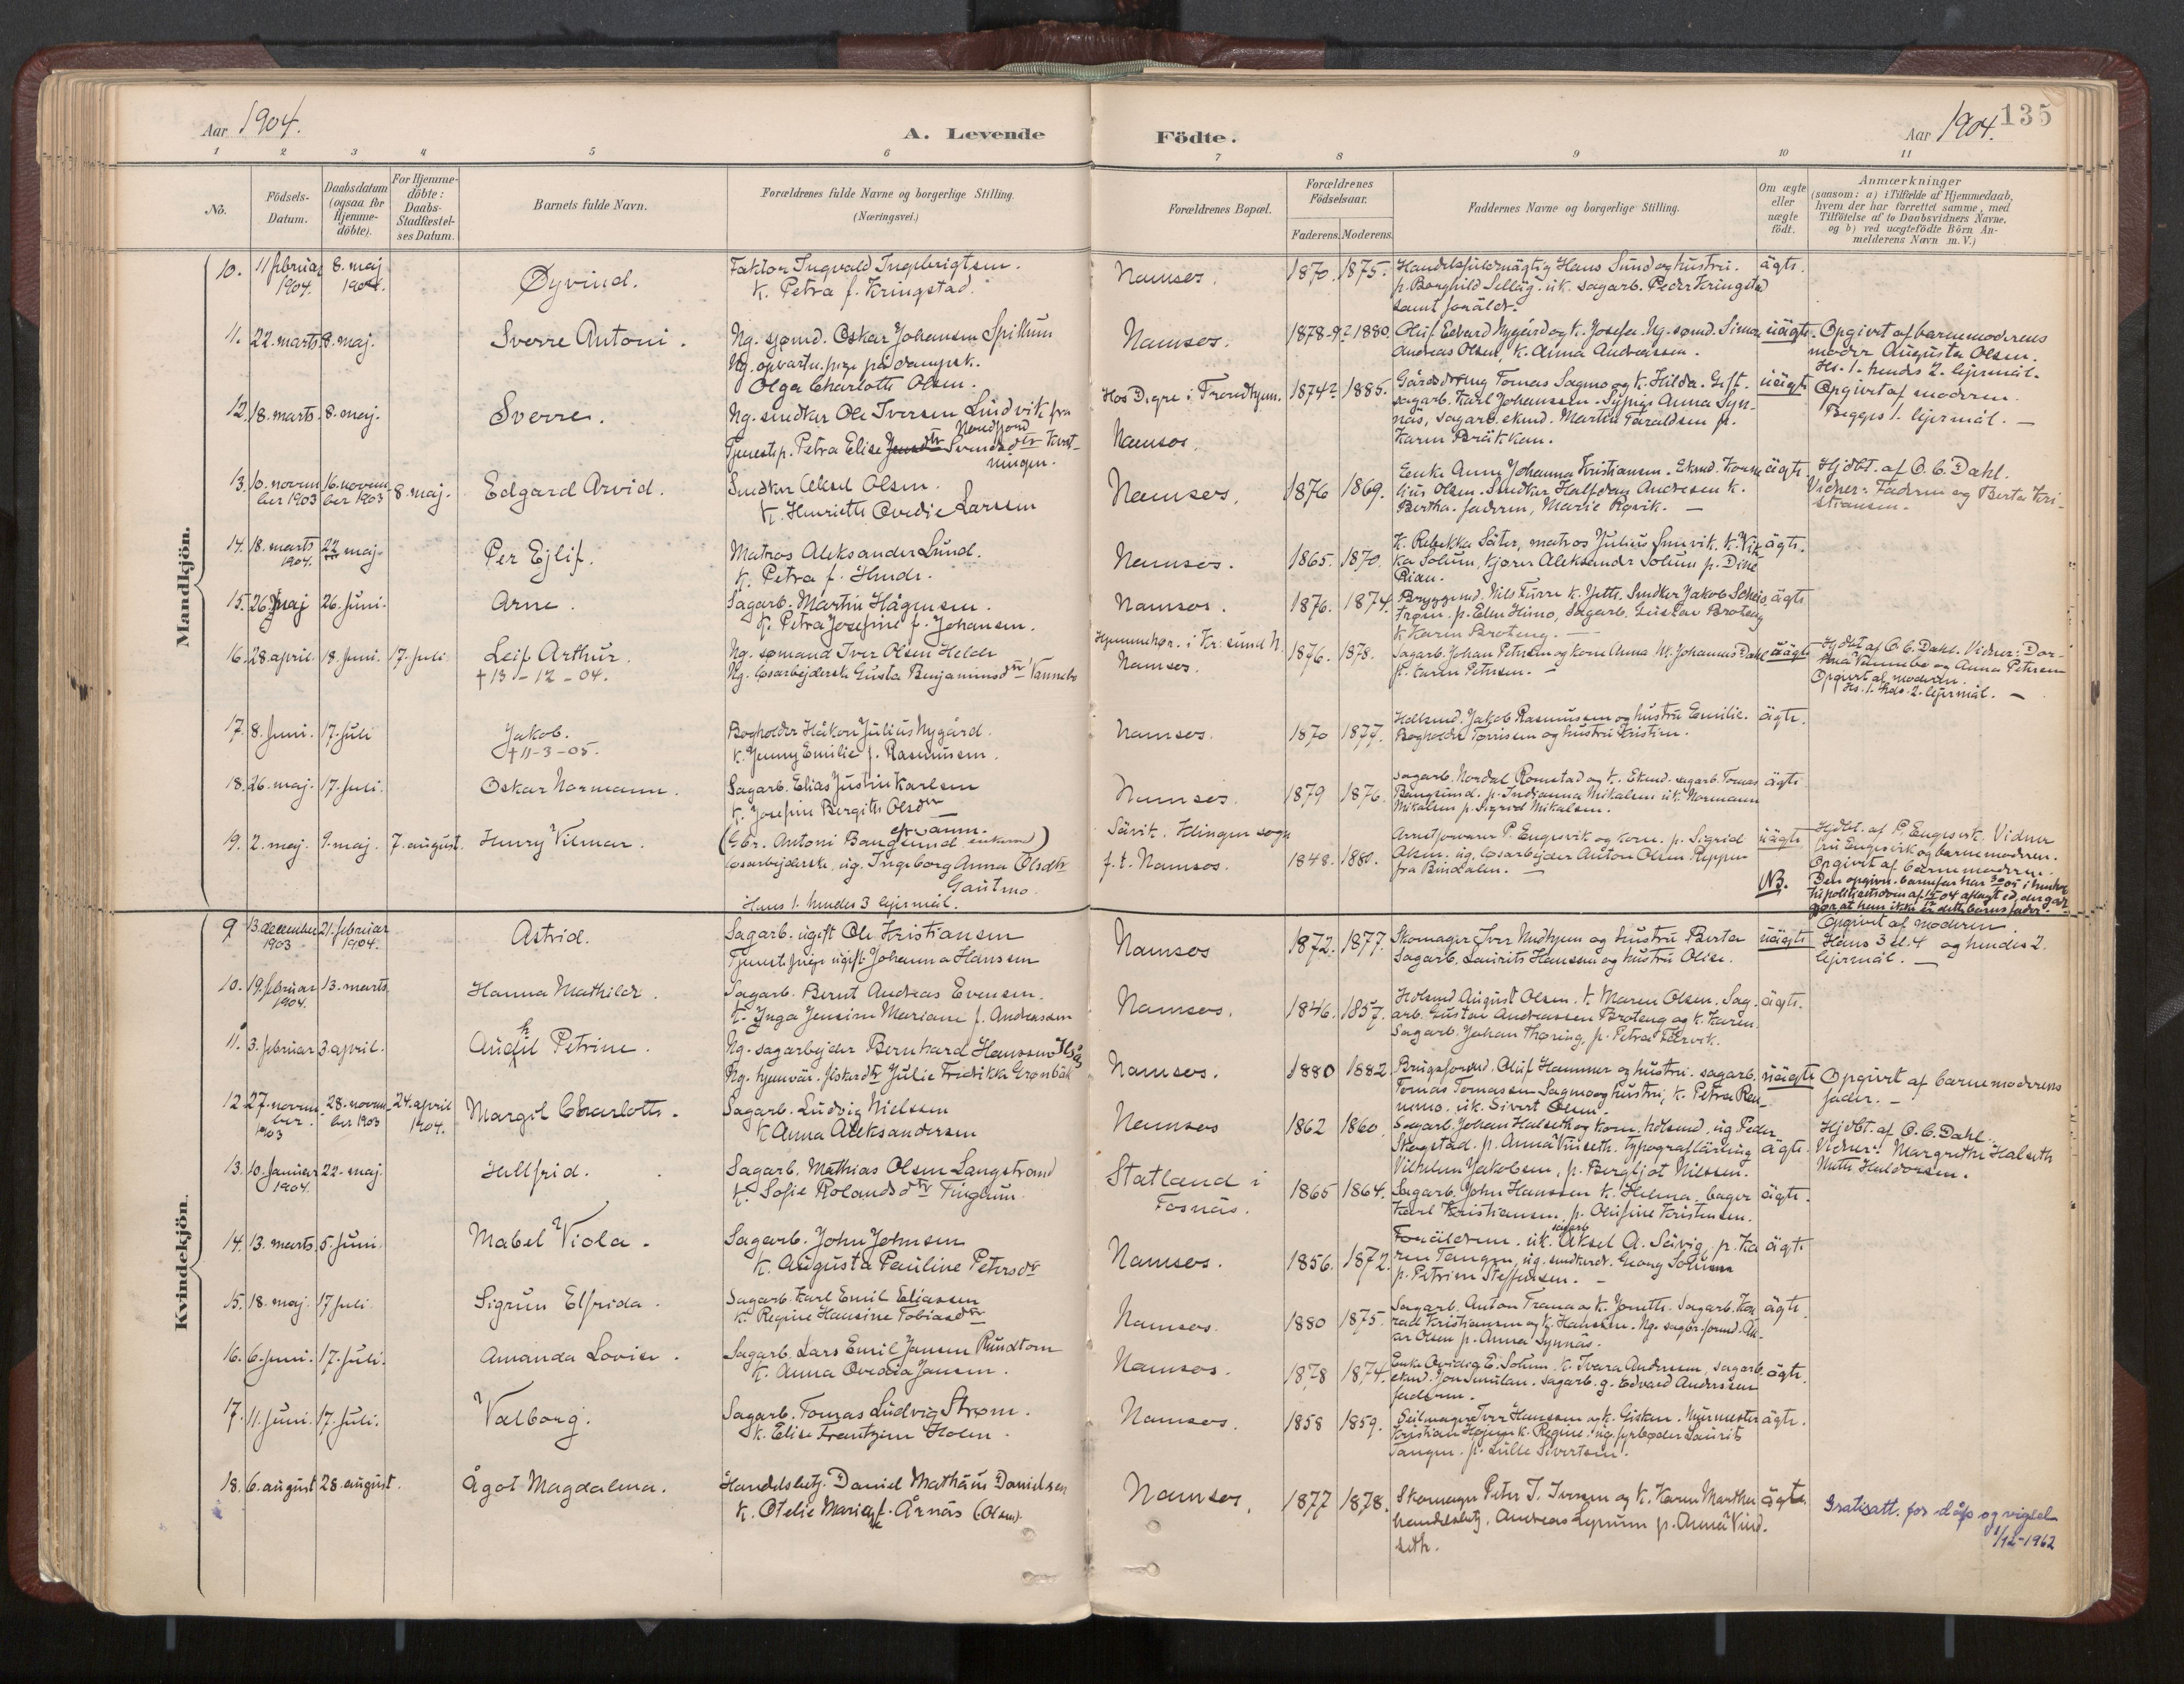 Aar 1904.
A. Levende
Födte.
Aar 1904.
135
1 2 3 4 5 6 7 8 9 10 11
No.
Födsels-
Datum.
Daabsdatum
(ogsaa for
Hjemme-
döbte).
For Hjemme-
döbte:
Daabs-
Stadfæstel-
ses Datum.
Barnets fulde Navn.
Forældrenes fulde Navne og borgerlige Stilling.
(Næringsvei.)
Forældrenes Bopæl.
Forældrenes
Födselsaar.
Faderens. Moderens.
Faddernes Navne og borgerlige Stilling.
Om ægte
eller
uægte
födt.
Anmærkninger
(saasom: a) i Tilfælde af Hjemmedaab,
hvem der har forrettet samme, med
Tilföielse af to Daabsvidners Navne,
og b) ved uægtefödte Börn An-
melderens Navn m. V.)
Mandkjön.
10. 11 februar 1904. 8. maj 1904. Øyvind.
Faktor Ingvald Ingebrigtsen.
k. Petra f. Kringstad.
Namsos. 1870. 1875.
Handelsfuldmägtig Hans Sund og hustru.
p. Borghild Selläg. uk. sagarb. Peder Kringstad
samt foräldr.
ägte.
11. 22. marts 8. maj. Sverre Antoni.
Ug. sjømd. Oskar Johansen Spillum
Ug. opvartn.pige på dampsk.
Olga Charlotte Olsen.
Namsos. 1878-9? 1880.
Oluf Edvard Nygård og k. Josefa. Ug. sømd. Simon
Andreas Olsen, k. Anna Andreassen.
uägte.
Opgivet af barnemoderens
moder Augusta Olsen.
Hs. 1. hendes 2. lejrmål.
12. 18. marts. 8. maj. Sverre.
Ug. snedker Ole Iversen Lindvik fra
Nordfjord
Tjenestep. Petra Elise Svendsdtr
Hos Digre i Trondhjem.
Namsos.
1874? 1885.
Gårdsdreng Tomas Sagmo og k. Hilda. Gift.
sagarb. Karl Johanssen. Sypige Anna Syn-
näs, sagarb. ekmd. Martin Taraldsen p.
Karen Bräkkan.
uägte
Opgivet af moderen.
Begges 1. lejrmål. —
13. 10. novem- ber 1903 16. novem- ber 1903 8. maj. Edgard Arvid.
Snedker Aksel Olsen.
k. Henriette Ovedie Larssen
Namsos. 1876 1869.
Enke Anne Johanna Kristiansen. Ekmd. Korne-
lius Olsen. Snedker Halfdan Andresen k.
Bertha. faderen, Marie Røvik. —
ägte.
Hjdbt. af O. C. Dahl.
Vidner: Faderen og Berta Kri-
stiansen.
14. 18. marts 1904. 22 maj. Per Ejlif.
Matros Aleksander Lund.
k. Petra f. Hende.
Namsos. 1865. 1870.
K. Rebekka Säter, matros Julius Smevik. k. Vik-
ka Solum, kjører Aleksander Solum p. Dine
Rian.
ägte.
15. 26. maj 26. juni. Arne.
Sagarb. Martin Hågensen.
k. Petra Josefine f. Johansen.
Namsos. 1876. 1874.
Bryggemd. Nils Furre k. Jette. Snedker Jakob
p. Elen Himo, sagarb. Gustav Broteng
k. Karen Broteng. —
ägte
16. 28. april. 18. juni. 17. juli. Leif Arthur.
† 13 - 12 - 04.
Ug. sømand Iver Olsen Helde
Ug. løsarbejderske Gusta Benjaminsdtr Vannebo
Hjemmehør. i Kr.sund N.
Namsos.
1876. 1878.
Sagarb. Johan Petersen og kone Anna. Johannes Dahl
p. Karen Petersen. —
uägte
Hjdbt af O. C. Dahl. Vidner: Dor-
thea Vannebo og Anna Petersen
Opgivet af moderen.
Hs. 1. hds. 2. lejrmål. —
17. 8. juni. 17. juli Jakob.
† 11-3-05.
Bogholder Håkon Julius Nygård.
k. Jenny Emilie f. Rasmussen.
Namsos. 1870 1877.
Jakob Rasmussen og hustru Emilie.
Bogholder Tørrissen og hustru Kristine.
ägte.
18. 26. maj. 17. juli. Oskar Normann.
Sagarb. Elias Justin Karlsen
k. Josefine Bergitte Olsdtr —
Namsos. 1879 1876.
Sagarb. Nordal Romstad og k. Ekmd. sagarb. Tomas
Bangsund. p. Indianna Mikalsen uk. Normann
Mikalsen p. Sigrid Mikalsen.
ägte
19. 2. maj. 9. maj. 7. august. Henry Vilmar.
(Gbr. Antoni Bangsund enkemd) efr. anm.
løsarbejderske, ug. Ingeborg Anna Olsdtr
Gautmo.
Hans 1. hendes 3 lejrmål.
Sävik. Klingen sogn
f. t. Namsos.
1848. 1880.
Arrestforvarer P. Engesvik og kone. p. Sigrid
Olsen. ug. løsarbejder Anton Olsen Reppen
fra Bindalen. —
uägte
NB.
Hjdbt. af P. Engesvik. Vidner
fru Engesvik og barnemoderen.
Opgivet af barnemoderen.
Den opgivne barnefar har 3/0 05 i henhold
til politiretsdom af 04 aflagt ed, der går
på at han ikke er dette barns fader.
Kvindekjön.
9 13. december 1903 21. februar 1904. Astrid.
Sagarb. ugift Ole Kristiansen
Tjenestepige ugift Johanna Hanssen
Namsos 1872. 1877.
Skomager Iver Midtjem og hustru Berta
Sagarb. Laurits Hansen og hustru Olise.
uägte
Opgivet af moderen
Hans 3 el. 4 og hendes 2.
lejrmål. —
10. 19. februar 1904. 13. marts. Hanna Mathilde.
Sagarb. Bernt Andreas Evensen.
k. Inga Jensine Mariane f. Andreassen
Namsos. 1846. 1857.
Holsmd August Olsen. k. Maren Olsen. Sag-
arb. Gustav Andreassen Broteng og k. Karen.
Sagarb. Johan Thøring, p. Petra Tervik.
ägte.
11. 3. februar 3. april. Audhil Petrine.
Ug. sagarbejder Bernhard Hanssen
Ug. hjemvär. fiskerdtr Julie Fredrikke Grønbäk
Namsos. 1880 1882
Brugsformd. Oluf Hammer og hustru. sagarb.
Tomas Tomassen Sagmo og hustru, k. Petra Ren-
nemo. uk. Sivert Olsen.
uägte
Opgivet af barnemoderens
fader. —
12. 27. novem- ber. 1903 28. novem- ber 1903 24. april 1904. Margit Charlotte.
Sagarb. Ludvig Nielssen
k. Anna Aleksandersen
Namsos 1862 1860.
Sagarb. Johan Halseth og kone, holsmd, ug Peder
Skogstad. p. Anna Vinseth. typograflärling
Vilhelm Jakobsen, p. Bergljot Nilssen.
ägte.
Hjdbt. af O. C. Dahl.
Vidner: Margrethe Halseth
Mette Haldorsen.
13. 10. januar 1904. 22. maj. Hallfrid.
Sagarb. Mathias Olsen Langstrand
k. Sofie Rolandsdtr Finganum.
Statland i
Fosnäs.
1865 1864.
Sagarb. John Hanssen k. Helma. bager
Karl Kristiansen, p. Olufine Kristensen.
ägte.
14. 13. marts. 5. juni. Mabel Viola.
Sagarb. John Johnsen
k. Augusta Pauline Petersdtr
Namsos. 1856. 1872.
Foräldrene. uk. sagarb. Aksel A. Sävig, p. Ka-
ren Tangen, ug. Georg Solum
p. Petrine Steffensen. —
ägte
15. 18. maj. 17 juli. Sigrun Elfrida.
Sagarb. Karl Emil Eliassen
k. Regine Hansine Tobiasdtr
Namsos. 1880 1875.
Sagarb. Anton Frana og k. Jonette. Sagarb. Kon-
rad Kristiansen og k. Hansine. Ug. sagbr.formd. An-
ar Olsen p. Anna Synnäs.
ägte
16. 6. juni. 17. juli. Amanda Lovise.
Sagarb. Lars Emil Jansen Rundtom
k. Anna Ovedia Jansen.
Namsos. 1878 1874.
Enke Ovidia E. Solum. k. Ivara Andersen, sagarb.
ekmd. Jon Smulan. sagarb. g. Edvard Anderssen
faderen.
ägte.
17. 11. juni. 17. juli. Valborg.
Sagarb. Tomas Ludvig Strøm.
k. Elise Frantzine Holen.
Namsos. 1858 1859.
Seilmager Iver Hanssen og k. Gisken. Murmester
Kristian Hojem k. Regine. ug. fyrbøder Laurits
Tangen. p. Lulle Sivertsen.
ägte.
18. 6. august 28. august. Ågot Magdalena.
Handelsbetj. Daniel Mathäus Danielsen
k. Otelie Marie f. Årnäs (Olsen).
Namsos. 1877 1878.
Skomager Peter J. Iversen og k. Karen Marthea
handelsbetj. Andreas Lyrum p. Anna Vind-
seth.
ägte
Gratisatt. for dåp og vigsel
1/12-1962